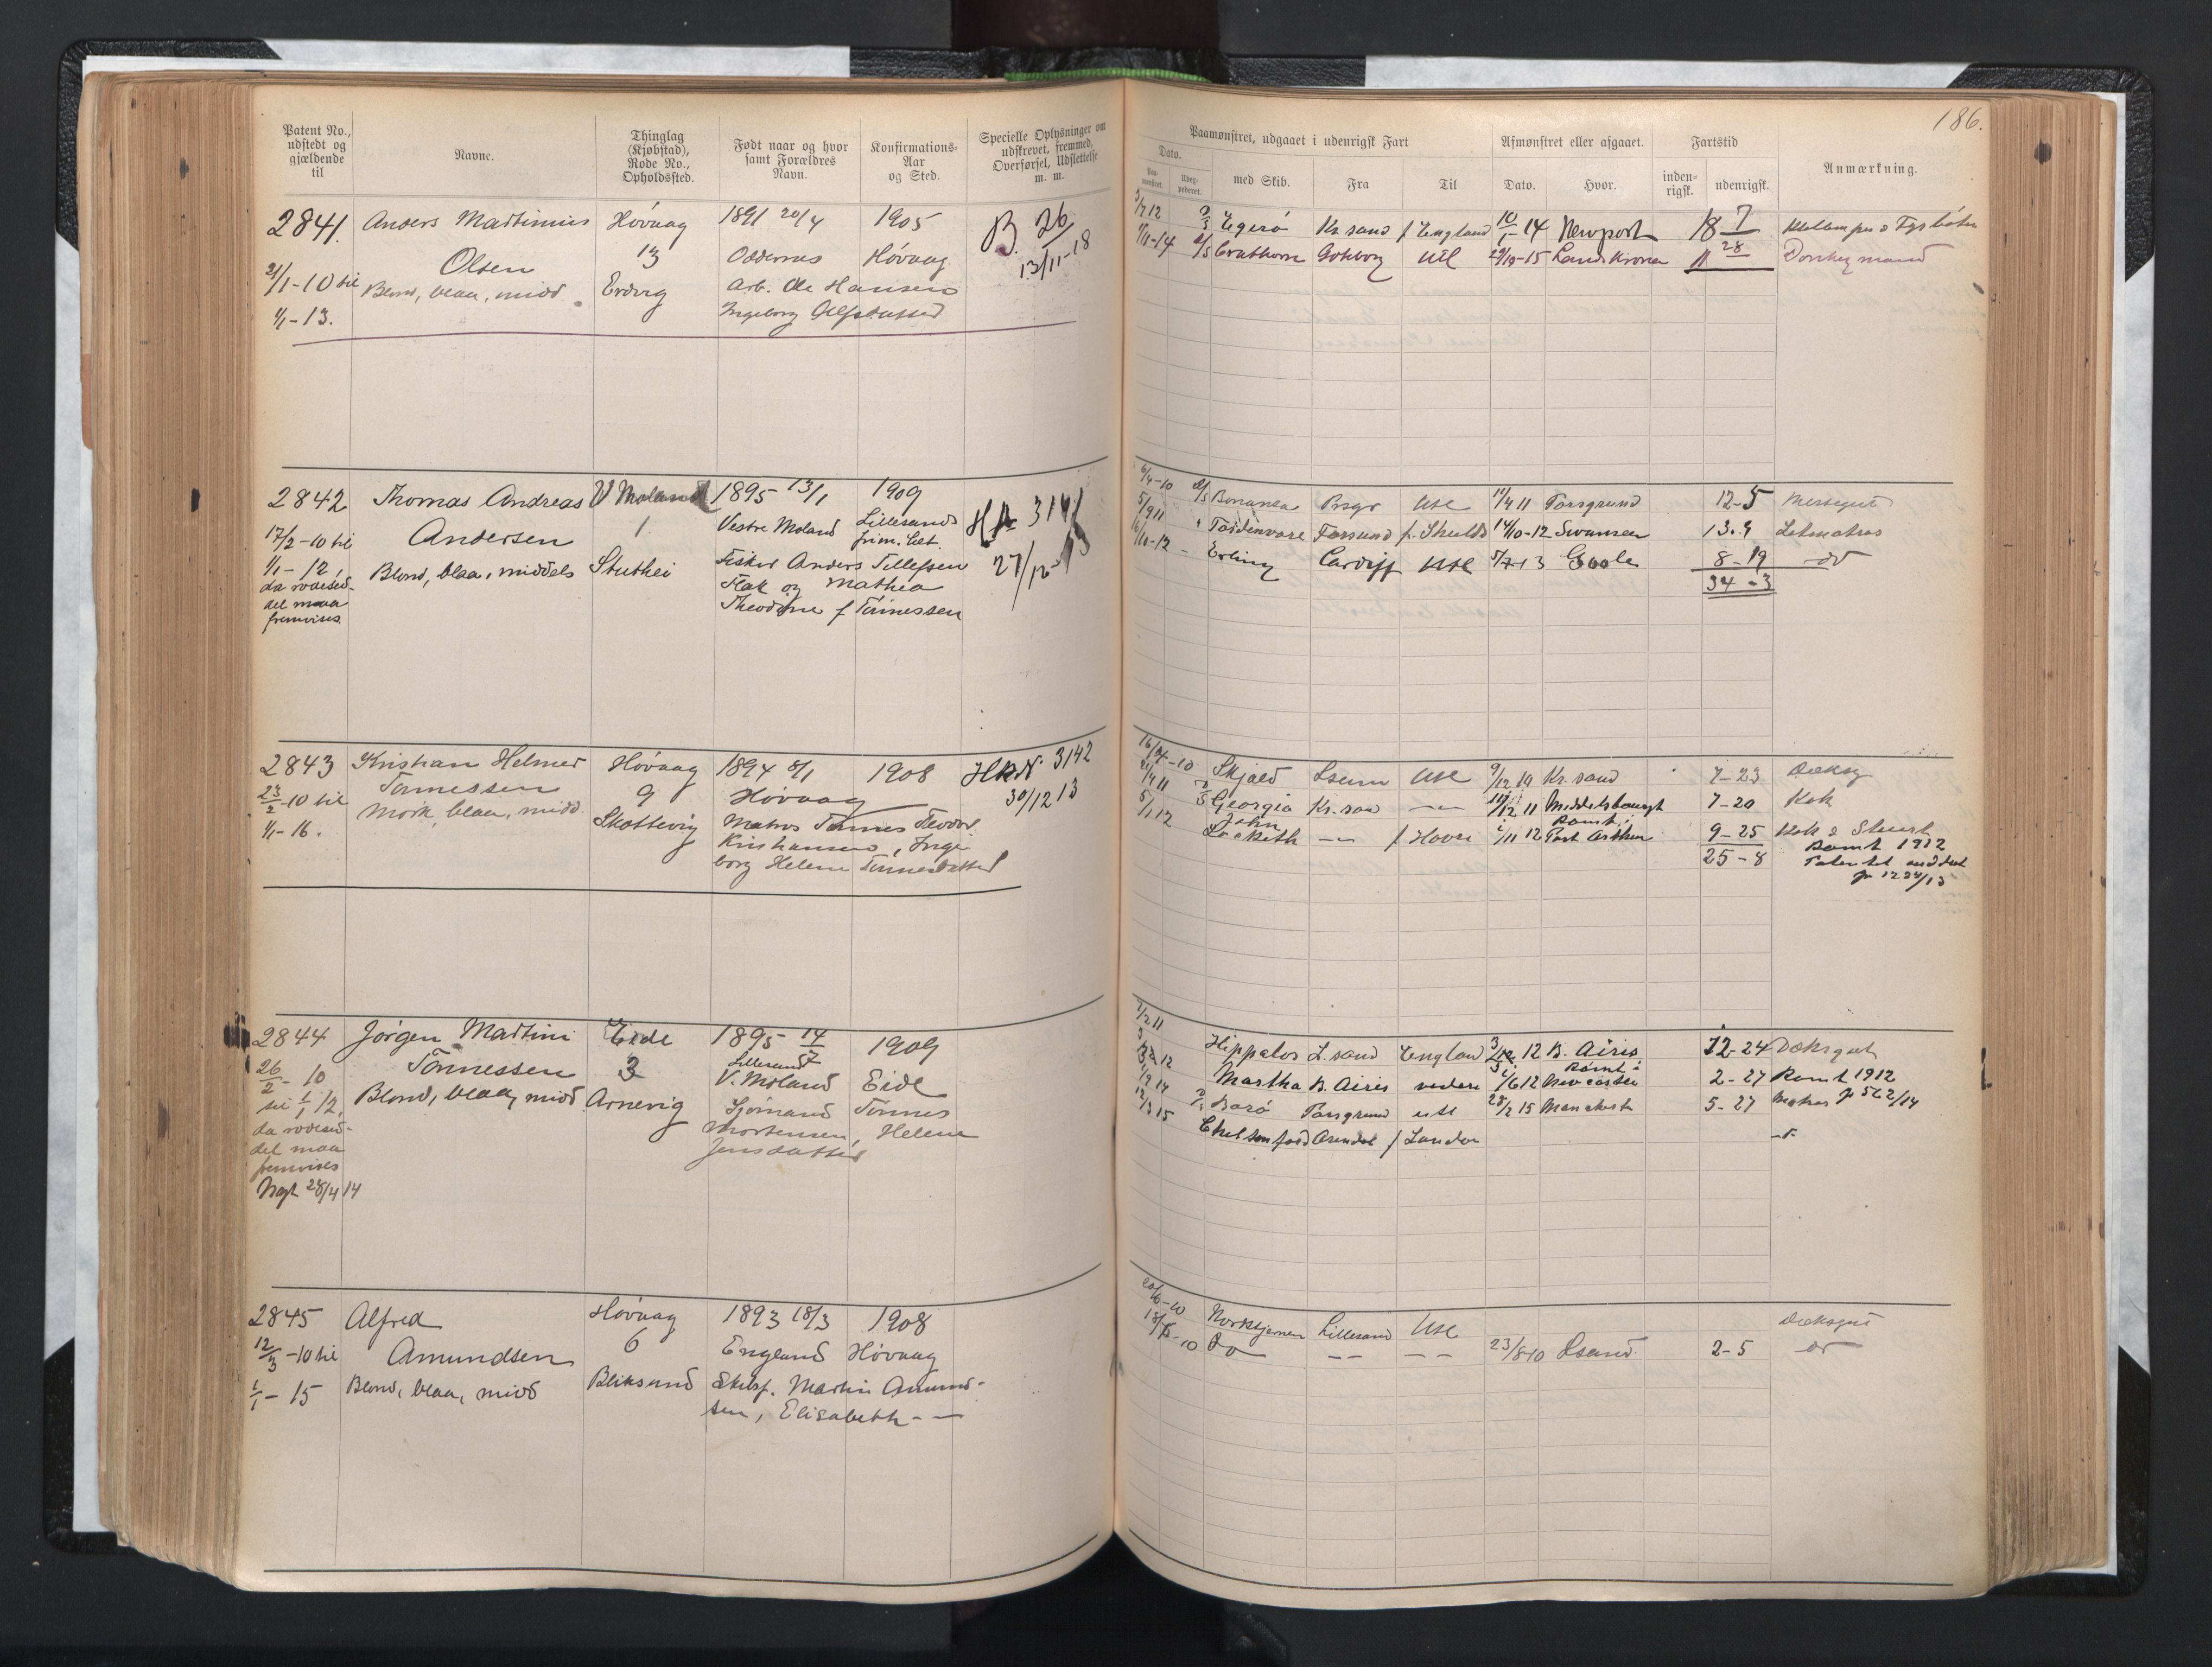 Patent No.,
udstedt og
gjældende
til
Navne.
Thinglag
(Kjøbstad),
Rode No.,
Opholdssted.
Født naar og hvor
samt Forældres
Navn.
Konfirmations-
Aar
og Sted.
Specielle Oplysninger om
udskrevet, fremmed,
Overførsel, Udslettelse
m. m.
2841.
21/1-10 til
1/1-13.
Anders Martinius
Olsen
Blond, blaa, midd.
Høvaag
13
1891 20/4
Oddernes
Arb. Ole Hansen
Ingeborg
1905
Høvaag
B. 26
13/11-18
2842
17/2-10 til
1/1-12,
da rodesed-
del maa
fremvises.
Thomas Andreas
Andersen
Blond, blaa, middels
V Moland
1.
Stuthei
1895 13/1
Vestre Moland
Fisker Anders Tellefsen
Flak og Mathea
Theodine f Tønnessen
1909
Lillesands
frim. Cat.
3141
27/12-13
2843
23/2-10 til
1/1-16.
Kristian Helmer
Tønnessen
Mørk, blaa, midd.
Høvaag
9
Skottevig
1894 8/1
Høvaag
Matros Tønnes Theodor
Kristiansen, Inge
borg Helene Tønnesdatter
1908
3142
30/12 13
2844
26/2-10
til 1/1 12,
da rodesed-
del maa
fremvises
Nyt 28/4 14
Jørgen Martini
Tønnessen
Blond, blaa, midd.
Eide
3
Arnevig
1895 14/7
Lillesand
V. Moland
Sjømand Tønnes
Mortensen, Helene
Jensdatter
1909
Eide
2845
12/3-10 til
1/1-15
Alfred
Amundsen
Blond, blaa, midd
Høvaag
6
Bliksund
1893 18/3
England
Skibsf. Martin Amund-
sen, Elisabeth - —
1908
Høvaag
186.
Paamønstret, udgaaet i udenrigsk Fart
Dato.
Paa-
mønstret.
med Skib.
Fra
Til
Afmønstret eller afgaaet.
Dato.
Hvor.
Fartstid
inden-
rigsk.
udenrigsk.
Anmærkning.
Egerø Kr. sand f England 10/1-14 Newport 18 7
Gøteborg Utl 15 Landskrona 11 28 Donkeymand
6/4-10 Bonanza Brgr Utl 11 Porsgrund 12-5 Messegut
5/9 11 Farsund f. Shields 14/10-12 Swansea 13.9 Letmatros
Erling Cardiff Utl 5/7-13 Goole 8-19 do
34-3
Skjold Lsund Utl 9/12 10 Kr. sand 7-23 Dæksg
Georgia Kr. sand — 11 Middelsbourgh 7-20 Kok
5/1 12 John
Lockett — f Havre 11 12 Port Arthur 9-25 Kok & Stuert
Rømt 1912
25-8
Hippalos L. sand England 12 B. Airis 12-24 Dæksgut
Rømt i
Martha B. Airis videre 6 12 Newcastle 2-27 Rømt 1912
Borø Porsgrund utl 28/2 15 Manchester 5-27 Matros
12/3 15 Chelmsford Arendal f London
20/6-10 Norstjernen Lillesand Utl Dæksgut
Do — — — — 23/8 10 Lsand 2-5 do